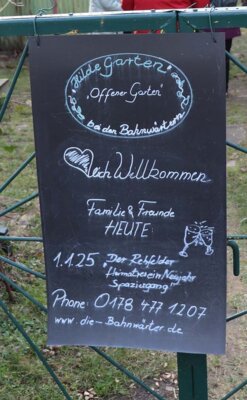 Hilde Garten
„Offener Garten"
bei den Bahnwärtern
Herzlich Willkommen
Familie & Freunde
HEUTE:
1.1.25 „Der Rehfelder
Heimatverein Neujahr
Spaziergang"
Phone: 0178 477 1207
www.die-Bahnwärter.de